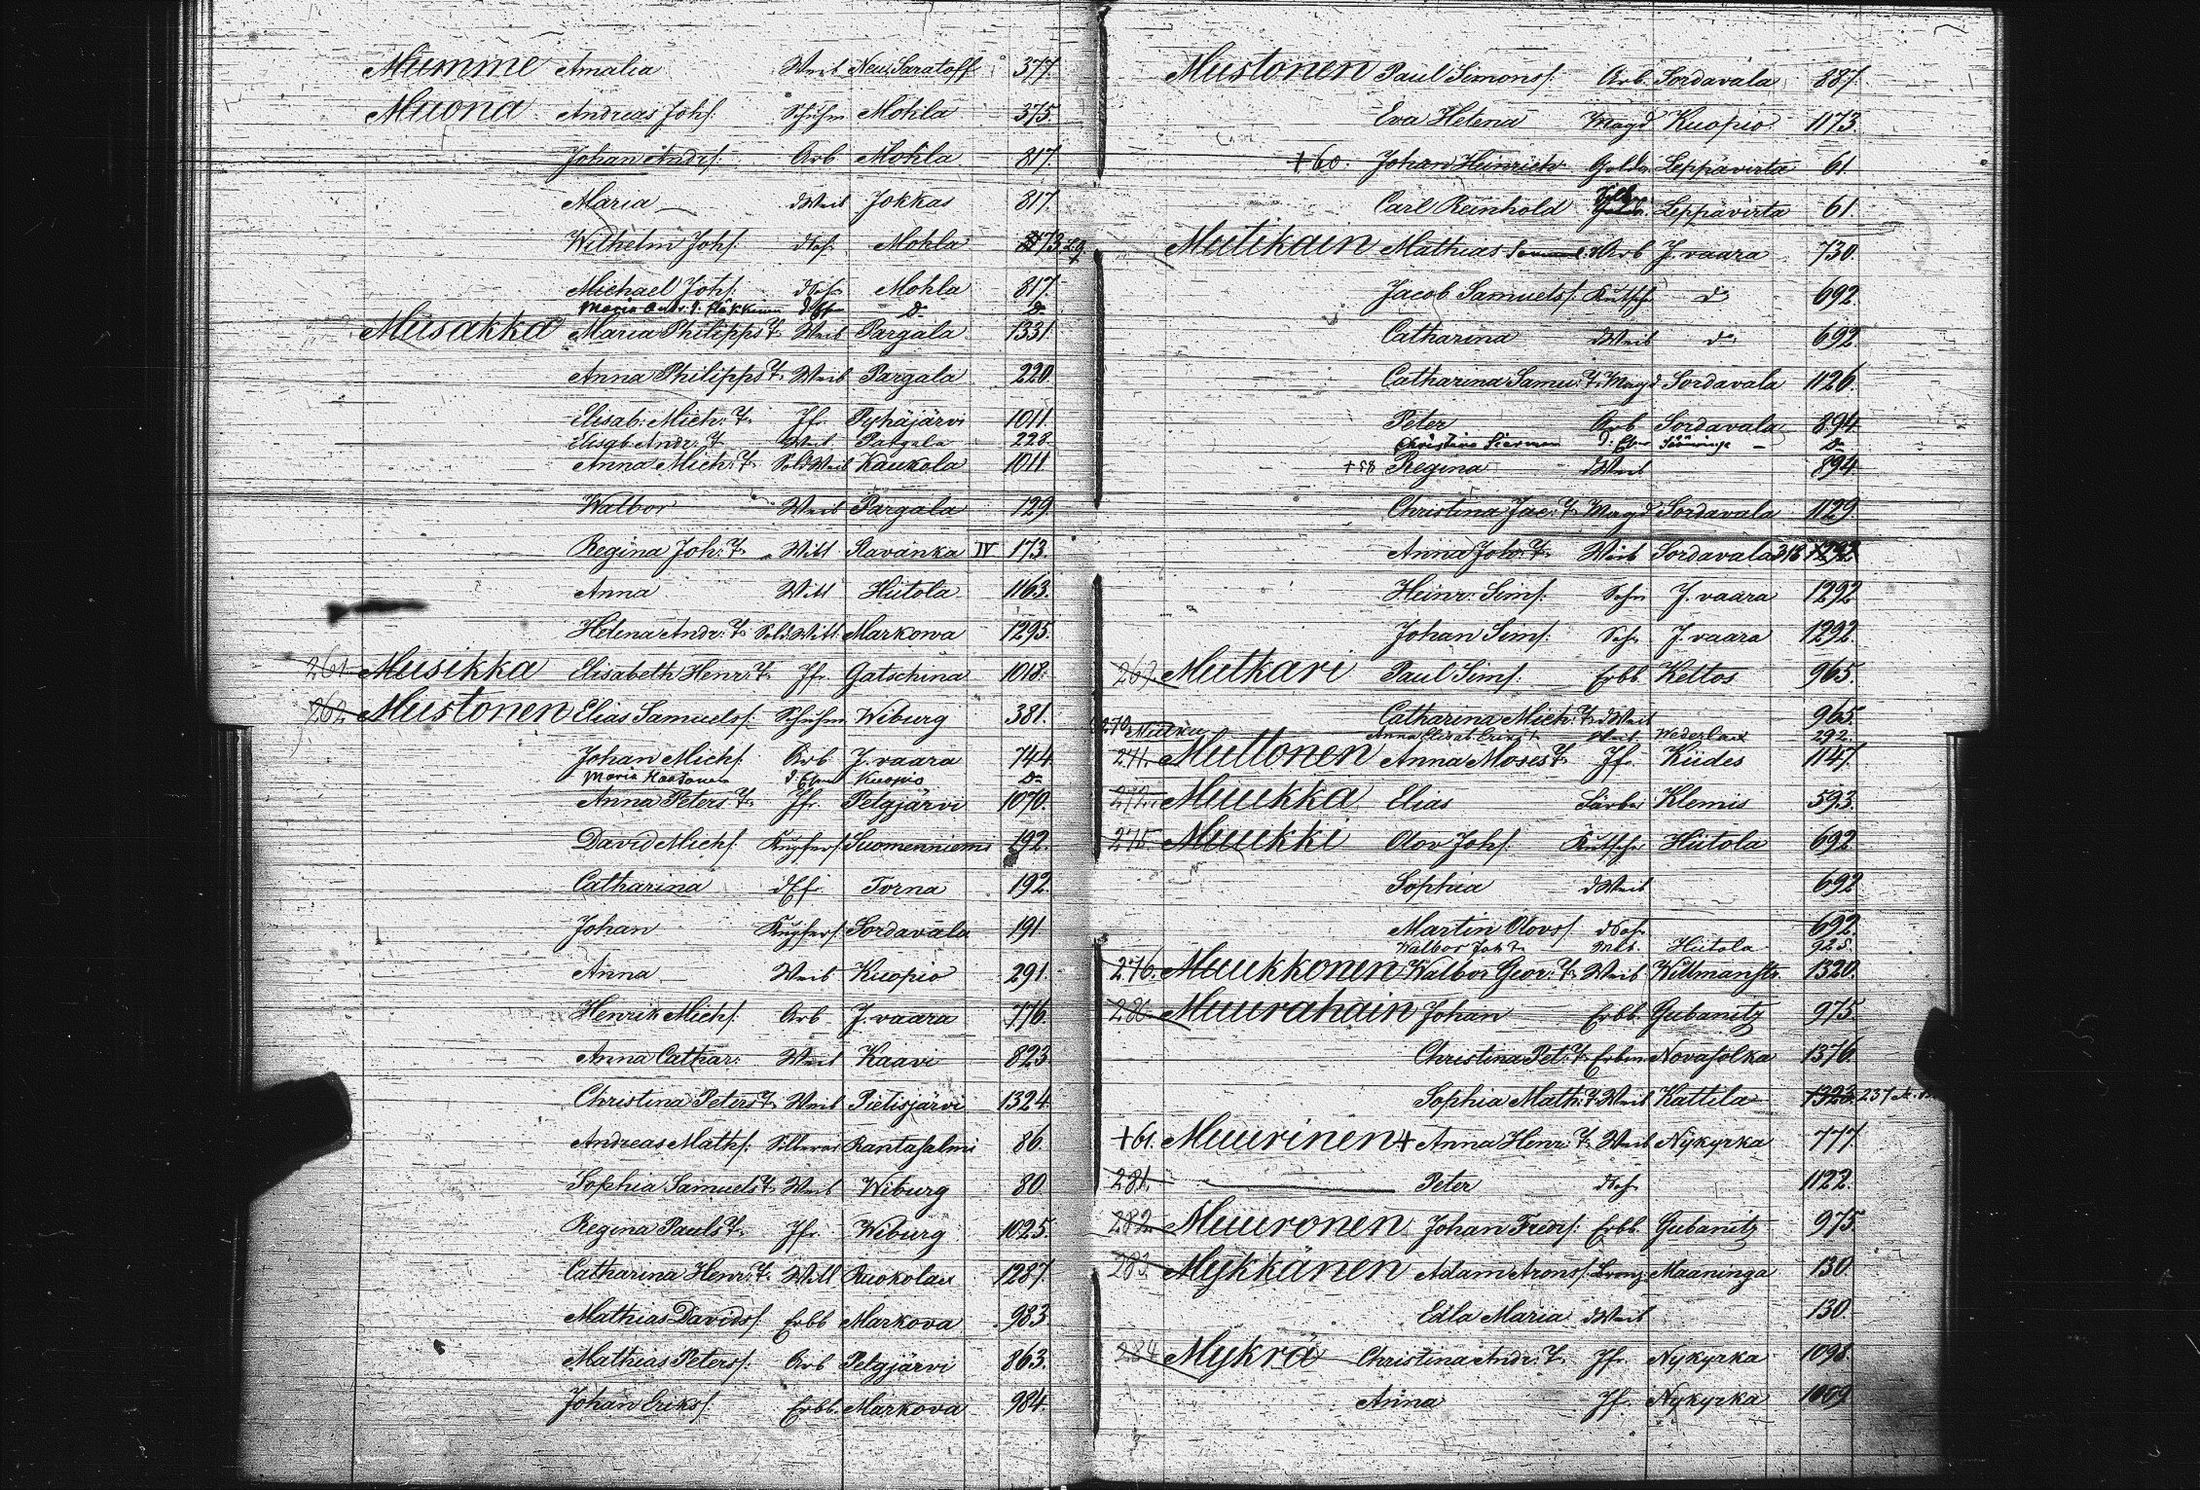 Mumme Amalia Weib Neu Saratoff 377.
Muona Andreas Johs. Schuhm Mohla 375.
Johan Andrs. Arb Mohla 817.
Maria dWeib Jokkas 817.
Wilhelm Johs. dSohn Mohla 73.
Michael Johs. dSohn Mohla 817.
Maria d. Efr D. Do
Musakka Maria Philipps T. Weib Pargala 1331
Anna Philipps T. Weib Pargala 220.
Elisab. Mich. T. Jfr. Pyhäjärvi 1011.
Elisab. Andr. T. Weib Pargala 228.
Anna Mich. T. Sold Weib Kaukola 1011
Walbor Weib Pargala 129.
Regina Joh. T. Witt Slavanka IV 173.
Anna Witt Hiitola 1163.
Helena Andr. T. Sold. Witt. Markowa 1295.
261. Musikka Elisabeth Henr. T. Jfr. Gatschina 1018.
262 Mustonen Elias Samuels. Schuhm Wiburg 381.
Johan Michs. Arb J. vaara 744
Maria d. Efrau Kuopio Do
Anna Peters T. Jfr. Pelgjärvi 1070.
David Michs. Kupfers. Suomenniemi 192.
Catharina dEf. Torna 192.
Johan Kupfers. Sordavala 191.
Anna Weib Kuopio 291.
Henrik Michs. Arb J. vaara 776.
Anna Cathar. Weib Kaavi 823
Christina Peters T. Weib Pielisjärvi 1324.
Andreas Maths. Silberar Rantasalmi 86.
Sophia Samuels T. Weib Wiburg 80.
Regina Pauls T. Jfr. Wiburg 1025.
Catharina Henr. T. Witt Ruokolax 1287.
Mathias Davids. Erbb Markova 983.
Mathias Peters. Arb Pelgjärvi 863.
Johan Eriks. Erbb. Markova 984.
Mustonen Paul Simons. Arb. Sordavala 887.
Eva Helena Magd Kuopio 1173.
+60. Johan Heinrich Golda. Leppävirta 61.
Carl Reinhold Leppävirta 61.
Mutikain Mathias Arb J. vaara 730.
Jacob Samuels. Kutsch. do 692.
Catharina dWeib do 692
Catharina Samu. T. Magd Sordavala 1126.
Peter Arb Sordavala 894.
Christina d. Efr Do
+58 Regina dWeib 894.
Christina Jac. T. Magd Sordavala 1129.
Anna Joh. T. Weib Sordavala 318
Heinr. Sims. Sohn J. vaara 1292
Johan Sims. Sohn J. vaara 1292.
269. Mutkari Paul Sims. Erbb. Keltos 965.
Catharina Mich. T. dWeib 965.
270. Mutka Anna Elisab. Weib. Wederlax 292.
271. Muttonen Anna Moses T. Jfr. Kiides 1147.
272. Muukka Elias Färber Klemis 593.
275. Muukki Olov Johs. Kutscher Hiitola 692.
Sophia dWeib 692
Martin Olovs. dSohn 692.
Walbor Joh T. Hiitola 925.
276. Muukkonen Walbor Geor. T. Weib Willmanstr. 1320.
280. Muurahain Johan Erbb. Gubanitz 975.
Christina Pet. T. Erbin Novasolka 1376.
Sophia Math. T. Weib Kattila 1323. 237
+61. Muurinen + Anna Henr. T. Weib Nykyrka 777.
281. Peter dSohn 1122.
282. Muuronen Johan Freds. Erbb. Gubanitz 975.
283. Mykkänen Adam Arons. Bronz. Maaninga 130.
Edla Maria dWeib 130.
284 Mykrä Christina Andr. T. Jfr. Nykyrka 1098.
Anna Jfr. Nykyrka 1009.